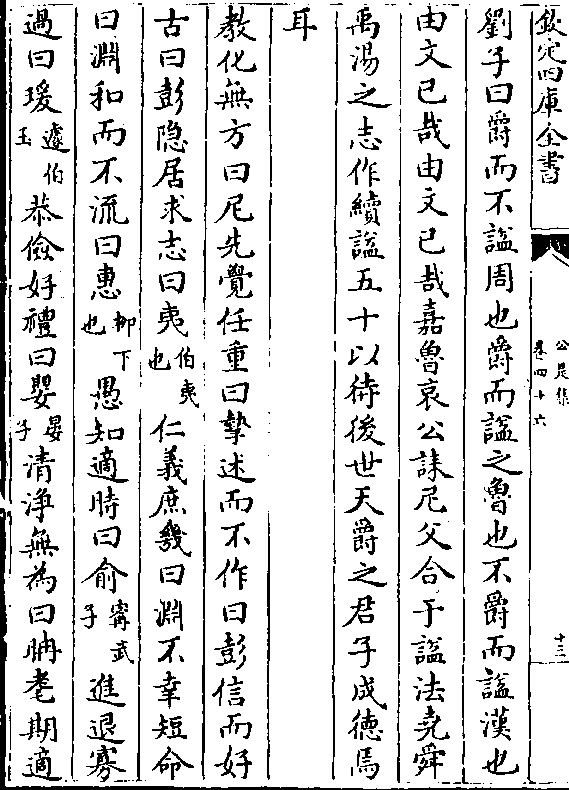 欽定四庫全書
公是集
卷四十六
十三
劉子曰爵而不諡周也爵而諡之魯也不爵而諡漢也
由文已哉由文已哉嘉魯哀公誄尼父合于諡法堯舜
禹湯之志作續諡五十以待後世天爵之君子成德焉
耳
教化無方曰尼先覺任重曰摯述而不作曰彭信而好
古曰彭隐居求志曰夷伯夷也仁義庶幾曰淵不幸短命
曰淵和而不流曰惠柳下也愚知適時曰俞甯武子進退寡
過曰瑗遽伯玉恭儉好禮曰嬰晏子清淨無為曰聃耄期適